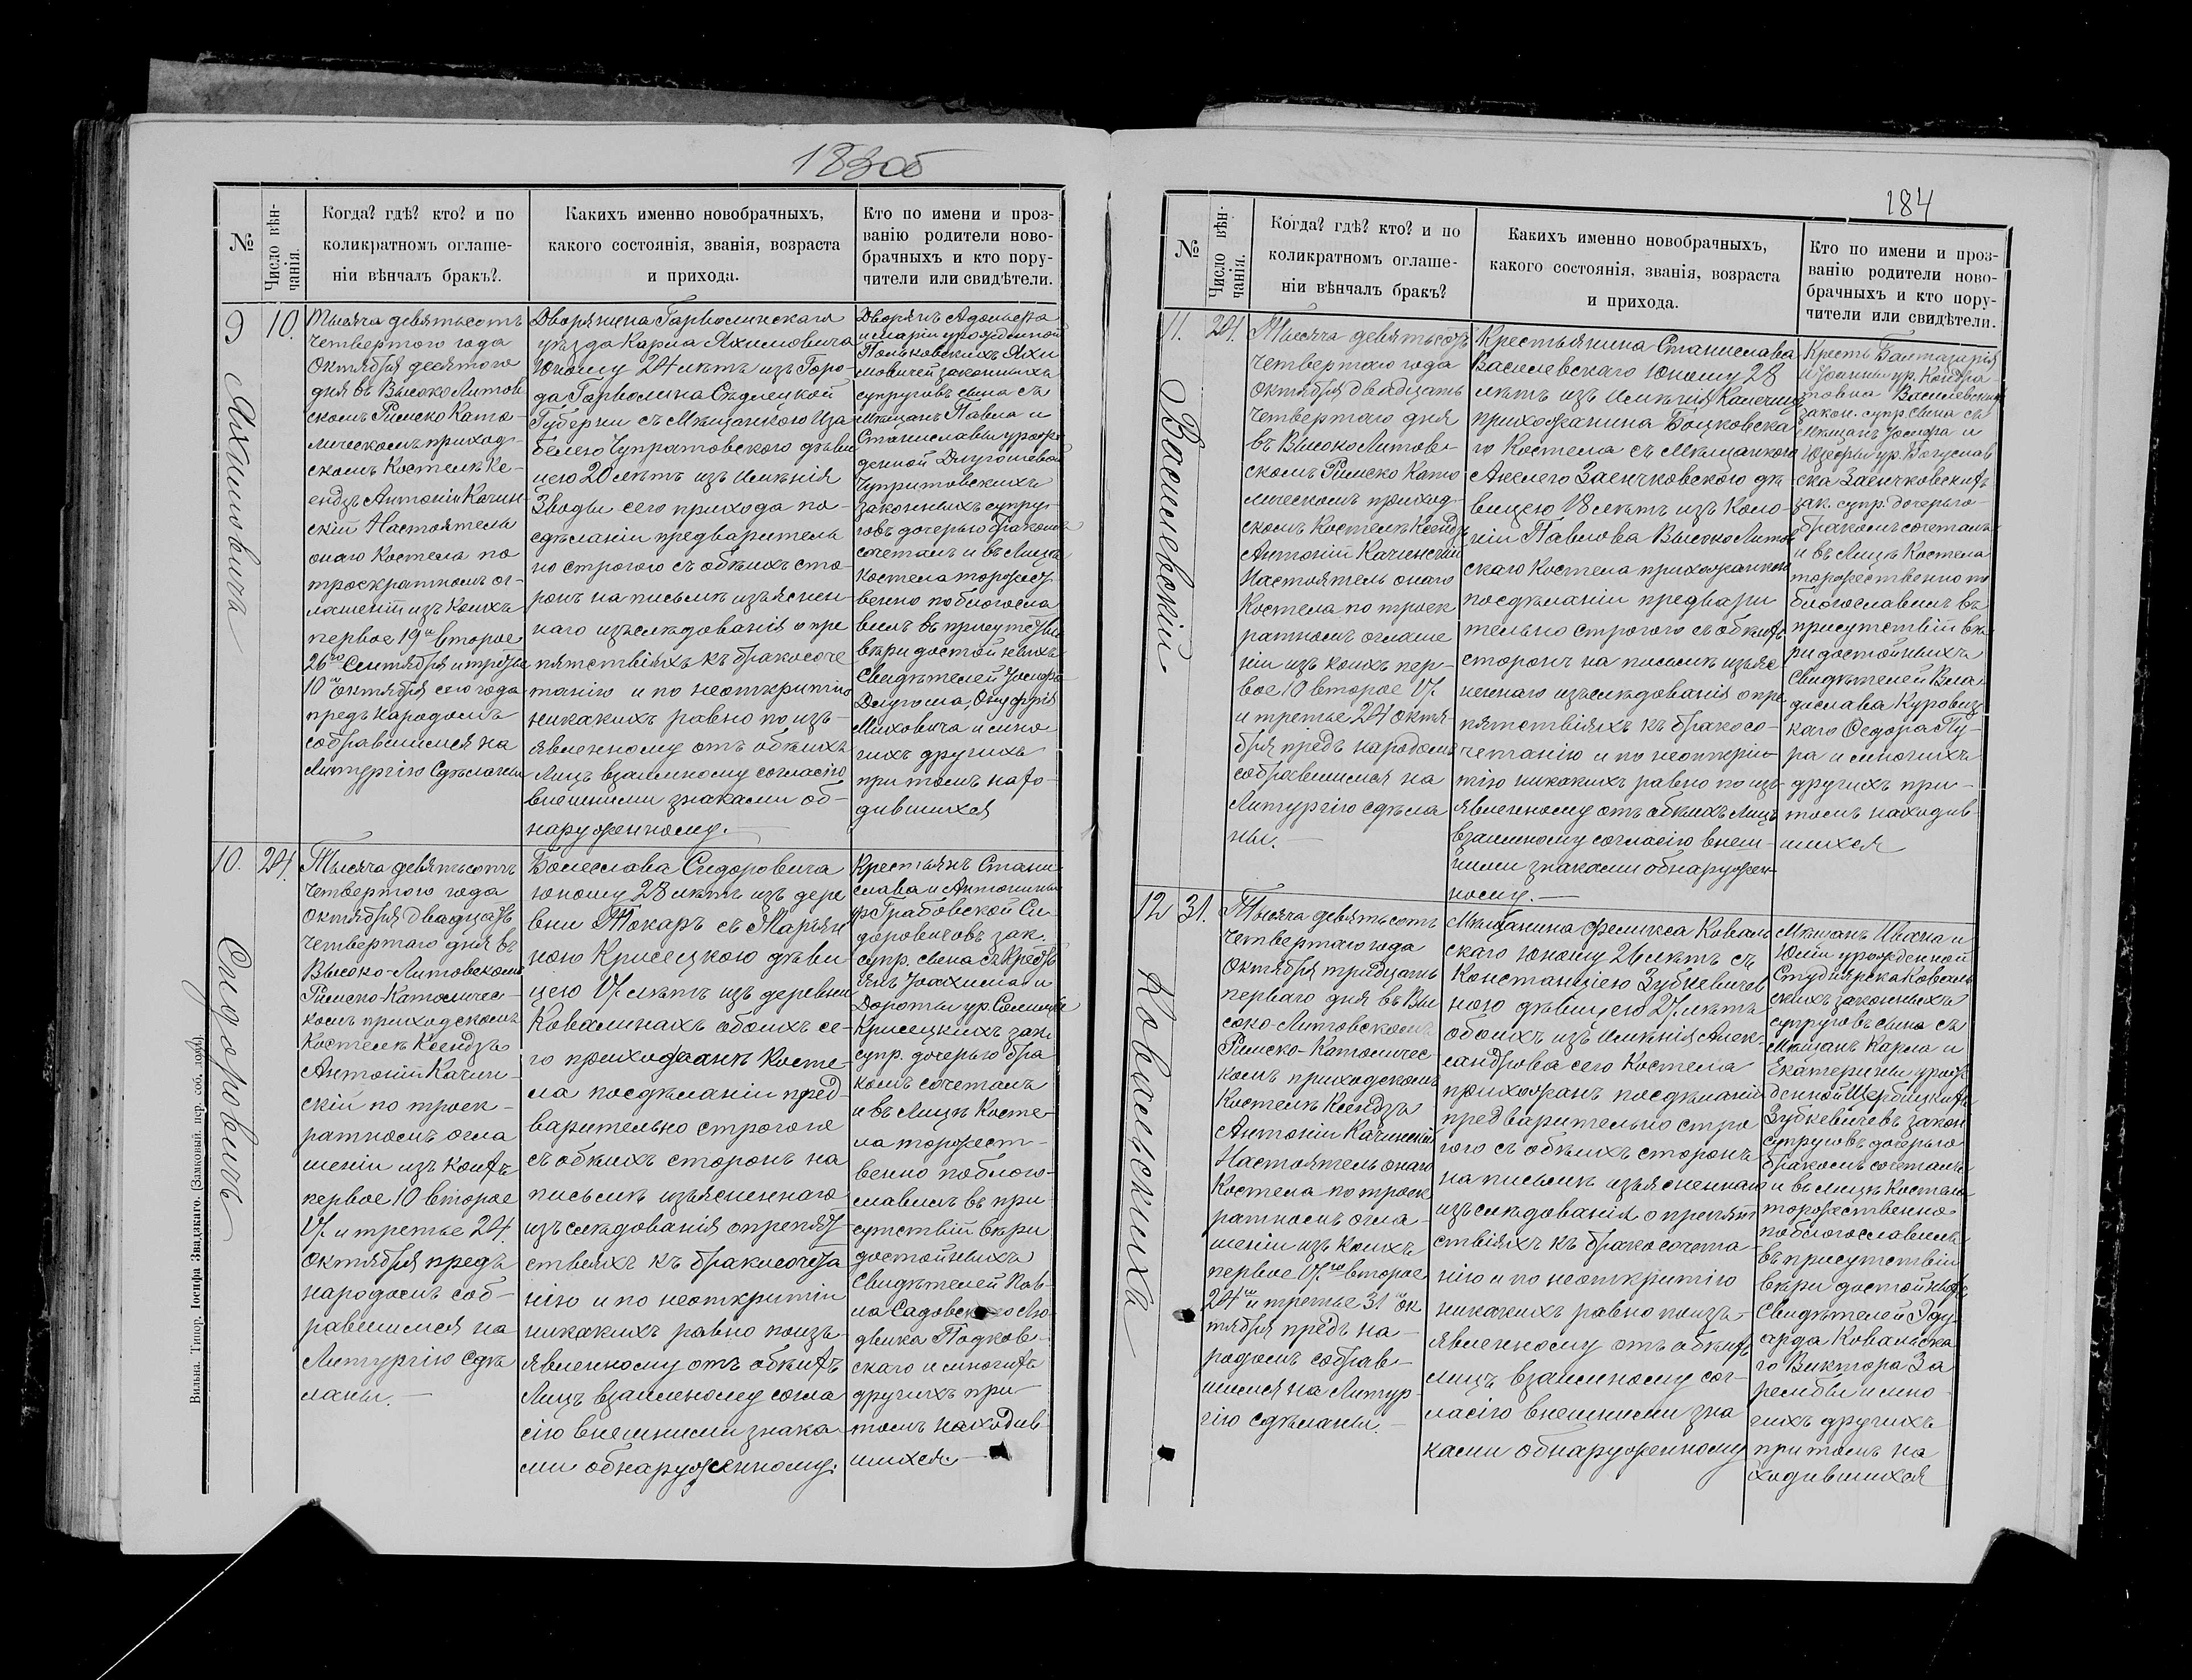 183об
№
Число вѣн-
чанія.
Когда? гдѣ? кто? и по
коликратномъ оглаше-
ніи вѣнчалъ бракъ?
Какихъ именно новобрачныхъ,
какого состоянія, званія, возраста
и прихода.
Кто по имени и проз-
ванію родители ново-
брачныхъ и кто пору-
чители или свидѣтели.
9
Яхимовичъ
10.
Тысяча девятьсотъ
четвертого года
Октября десятого
дня въ Высоко Литов
скомъ Римско Като
лическомъ приход-
скомъ Костелѣ Ке-
ендзъ Антоній Качин-
скій Настоятель
оного Костела по
троекратномъ ог-
лашеніи изъ коихъ
первое 19го второе
26го Сентября и третье
10го Октября сего года
предъ народомъ
собравшимся на
Литургію сдѣланы
Дворянина Гарволинскаго
уѣзда Карла Яхимовича
юношу 24 лѣтъ изъ Горо-
да Гарволина Сѣдлецкой
Губерніи съ Мѣщанкою Иза
белею Чупратовского дѣви
цею 20 лѣтъ изъ имѣнія
Зводы сего прихода по-
сдѣланіи предваритель
но строгого съ обѣихъ сто-
ронъ на письмѣ изъяснен-
наго изъслѣдованія о пре
пятствіяхъ къ бракосоче
танію и по неоткритію
никакихъ равно по изъ-
явленному отъ обѣихъ
Лицъ взаимному согласію
внешними знаками об-
наруженному.
Дворянъ Адольфа
и Маріи урожденной
Поньковскихъ Яхи
мовичей законныхъ
супруговъ сына съ
Мѣщанъ Павла и
Станиславы урож
денной Длугошевой
Чупритовскихъ
законныхъ супру-
говъ дочерью бракомъ
сочеталъ и въ Лицѣ
Костела торжест
венно поблагосла
вилъ въ присутствіи
вѣри достойныхъ
Свидѣтелей Іосифа
Длугоша, Онуфрія
Миховича и мно
гихъ другихъ
при томъ нахо-
дившихся
10.
Сидоровичъ
24.
Тысяча девятьсотъ
четвертого года
Октября двадцать
четвертаго дня въ
Высоко-Литовскомъ
Римско-Католичес-
комъ приходскомъ
Костелѣ Ксендзъ
Антоній Качин-
скій по троек-
ратномъ огла
шеніи изъ коихъ
первое 10 второе
17. и третье 24.
Октября предъ
народомъ соб-
равшимся на
Литургію сдѣ
ланы.
Болеслава Сидоровича
юношу 28 лѣтъ изъ дере
вни Токаръ съ Маріян
ною Крисецкою дѣви
цею 17. лѣтъ изъ деревни
Ковалинахъ обоихъ се-
го прихожанъ Косте-
ла посдѣланіи пред-
варительно строгого
съ обѣихъ сторонъ на
письмѣ изъясненнаго
изъслѣдованія о препят
ствіяхъ къ бракосочета
нію и по неоткритіи
никакихъ равно поизъ-
явленному отъ обѣихъ
Лицъ взаимному согла
сію внешними знака
ми обнаруженному.
Крестьянъ Стани
слава и Антонины
ур Грабовской Си
доровичовъ зак.
супр. сына съ Кресть
янъ Іоахима и
Дороты ур.
Крисецкихъ зак.
супр. дочерью бра
комъ сочеталъ
и въ Лицѣ Косте-
ла торжест-
венно поблаго-
славилъ въ при
сутствіи вѣри
достойныхъ
Свидѣтелей Пав-
ла Садовского Лю
двика Подков-
скаго и многихъ
другихъ при
томъ находив-
шихся.
Вильна. Типор. Іосифа Звадзкаго. (Замковый. пер. соб. домъ).
184
№
Число вѣн-
чанія.
Когда? гдѣ? кто? и по
коликратномъ оглаше-
ніи вѣнчалъ бракъ?
Какихъ именно новобрачныхъ,
какого состоянія, званія, возраста
и прихода.
Кто по имени и проз-
ванію родители ново-
брачныхъ и кто пору-
чители или свидѣтели.
11.
Василевскій
24.
Тысяча девятьсотъ
четвертаго года
Октября двадцать
четвертаго дня
въ ВысокоЛитов-
скомъ Римско Като
лическомъ приход-
скомъ Костелѣ Ксендзъ
Антоній Качинскій
Настоятель онаго
Костела по троек
ратномъ оглаше
ніи изъ коихъ пер-
вое 10 второе 17.
и третье 24 октя-
бря предъ народомъ
собравшимся на
Литургію сдѣла
ны.
Крестьянина Станислава
Василевскаго юношу 28
лѣтъ изъ имѣнія
прихожанина Боцковска
го Костела съ Мѣщанкою
Анелего Заенчковского дѣ
вицею 18 лѣтъ изъ Коло-
ніи Павлова ВысокоЛитов
скаго Костела прихожанкою
посдѣланіи предвари
тельно строгого съ обѣихъ
сторонъ на письмѣ изъяс
неннаго изъслѣдованія о пре
пятствіяхъ къ бракосо-
четанію и по неоткри-
тію никакихъ равно по изъ-
явленному отъ обѣихъ Лицъ
взаимному согласію внеш-
ними знаками обнаружен-
ному.
Кресть Балтазарія
и Іоанны ур. Кондра
товна Василевскихъ
закон. супр. сына съ
Мѣщанъ Іосифа и
Юзефы ур. Богуслав
ска Заенчковскихъ
зак. супр. дочерью
бракомъ сочеталъ
и въ Лицѣ Костела
торжественно по
благославилъ въ
присутствіи вѣ
ри достойныхъ
Свидѣтелей Вла-
дислава Куровиц
каго Федора Пу-
ра и многихъ
другихъ при-
томъ находив-
шихся
12
Ковальскихъ
31.
Тысяча девятьсотъ
четвертаго года
Октября тридцать
перваго дня въ Вы
соко-Литовскомъ
Римско-Католичес
комъ приходскомъ
Костелѣ Ксендзъ
Антоній Качинскій
Настоятель онаго
Костела по троек
ратномъ огла-
шеніи изъ коихъ
первое 17.го второе
24го и третье 31го ок
тября предъ на-
родомъ собрав-
шимся на Литур-
гію сдѣланы.
Мѣщанина Феликса Коваль
скаго юношу 26 лѣтъ съ
Констанціею Зубкевичов
ною дѣвицею 27. лѣтъ
обоихъ изъ имѣнія Алек-
сандрова сего Костела
прихожанъ посдѣланіи
предварительно стро
гого съ обѣихъ сторонъ
на письмѣ изъясненнаго
изъслѣдованія о препят
ствіяхъ къ бракосочета-
нію и по неоткритію
никакихъ равно поизъ-
явленному отъ обѣихъ
лицъ взаимному сог-
ласію внешними зна
ками обнаруженному
Мѣщанъ Ивана и
Юліи урожденной
Студнярска Коваль
скихъ законныхъ
супруговъ сына съ
Мѣщанъ Карла и
Екатерины урож
денной Щербицкихъ
Зубкевичевъ закон
супруговъ дочерью
бракомъ сочеталъ
и въ лицѣ Костела
торжественно
поблагославилъ
въ присутствіи
вѣри достойныхъ
Свидѣтелей Эду-
арда Ковальска
го Виктора За
рембы и мно-
гихъ другихъ
при томъ на
ходившихся